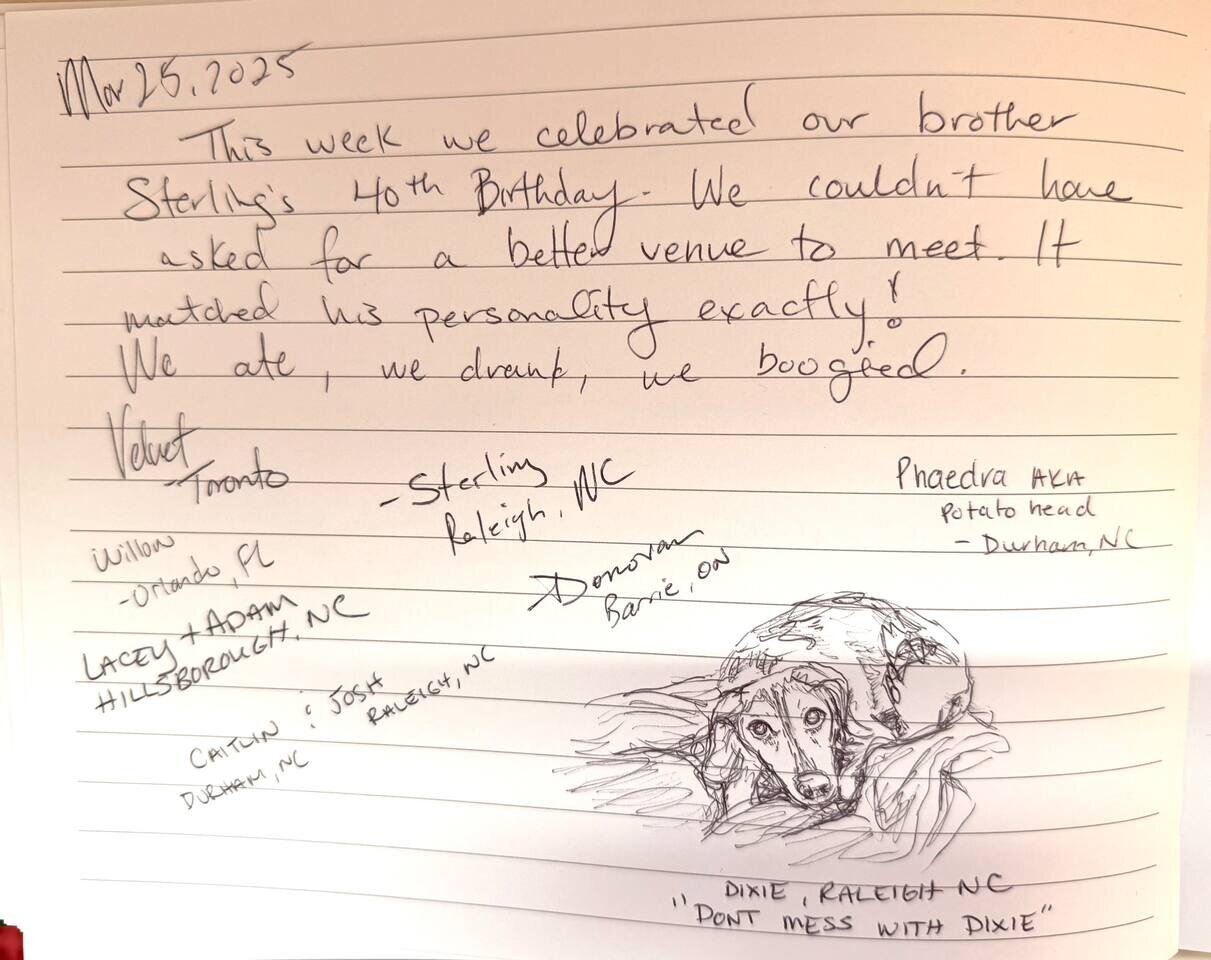 Mar 25, 2025
This week we celebrated our brother
Sterling's 40th Birthday. We couldn't have
asked for a better venue to meet. It
matched his personality exactly!
We ate, we drank, we boogied.
Velvet
-Toronto
- Sterling
Raleigh, NC
Phaedra AKA
Potato head
- Durham, NC
Willow
-Orlando, FL
Donovan
Barrie, ON
LACEY + ADAM
HILLSBOROUGH, NC
CAITLIN : JOSH
DURHAM, NC
RALEIGH, NC
DIXIE, RALEIGH NC
"DONT MESS WITH DIXIE"